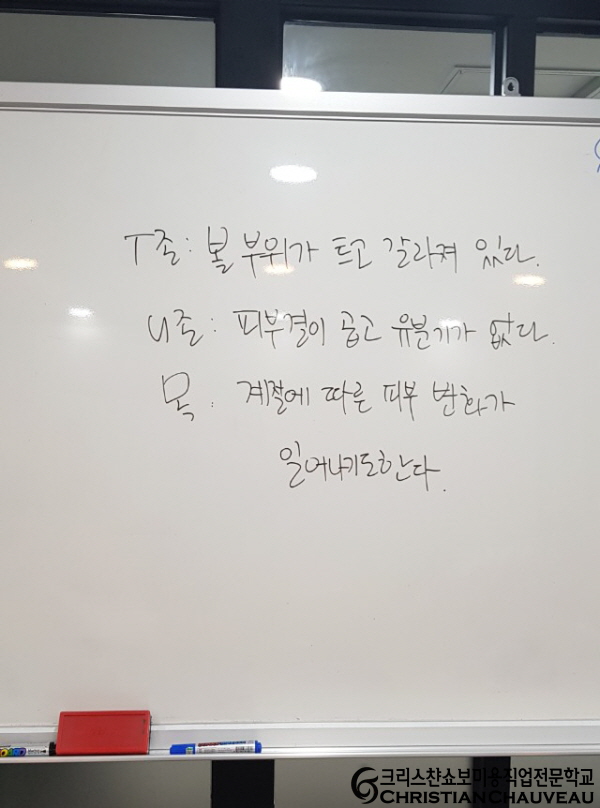 T존: 볼 부위가 트고 갈라져 있다.
U존: 피부결이 곱고 유분기가 없다.
목: 계절에 따른 피부 변화가
일어나기도한다.
크리스챤쇼보미용직업전문학교
CHRISTIANCHAUVEAU